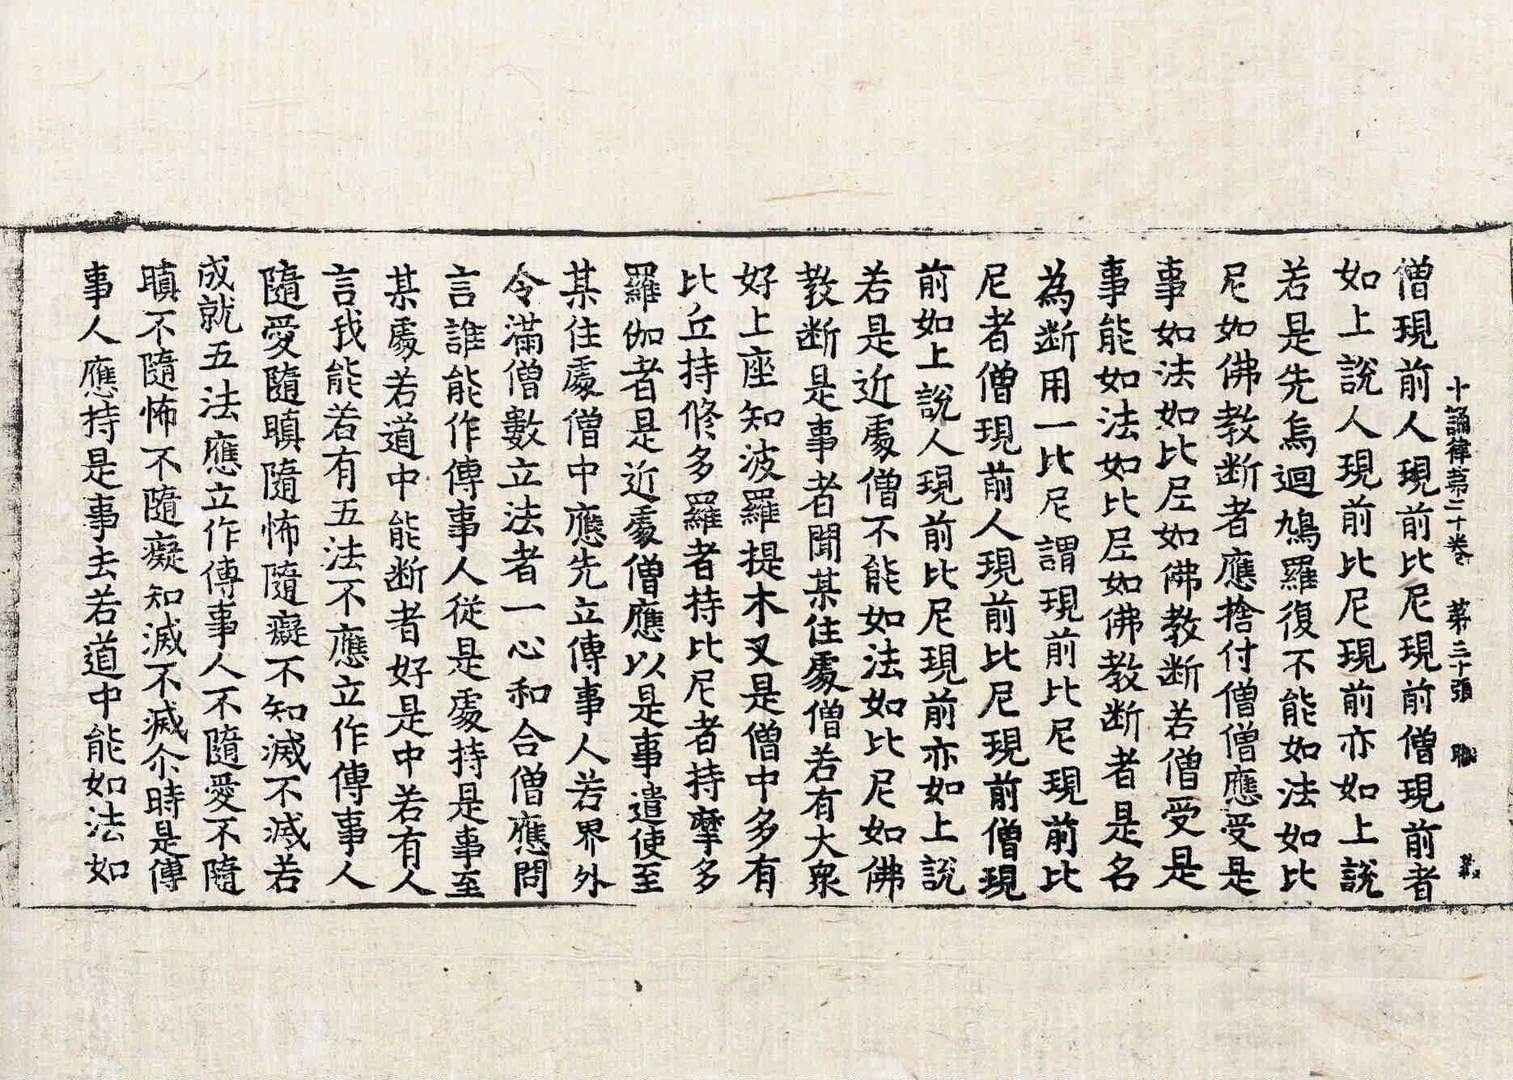 十誦律苐二十卷 苐三十張 職
僧現前人現前比尼現前僧現前者
如上說人現前比尼現前亦如上說
若是先烏迴鳩羅復不能如法如比
尼如佛教断者應捨付僧僧應受是
事如法如比尼如佛教断若僧受是
事能如法如比尼如佛教断者是名
為断用一比尼謂現前比尼現前比
尼者僧現前人現前比尼現前僧現
前如上說人現前比尼現前亦如上說
若是近處僧不能如法如比尼如佛
教断是事者聞某住處僧若有大衆
好上座知波羅提木叉是僧中多有
比丘持修多羅者持比尼者持摩多
羅伽者是近處僧應以是事遣使至
某住處僧中應先立傳事人若界外
令滿僧數立法者一心和合僧應問
言誰能作傳事人從是處持是事至
某處若道中能断者好是中若有人
言我能若有五法不應立作傳事人
隨愛隨瞋隨怖隨癡不知滅不滅若
成就五法應立作傳事人不隨愛不隨
瞋不隨怖不隨癡知滅不滅尒時是傳
事人應持是事去若道中能如法如